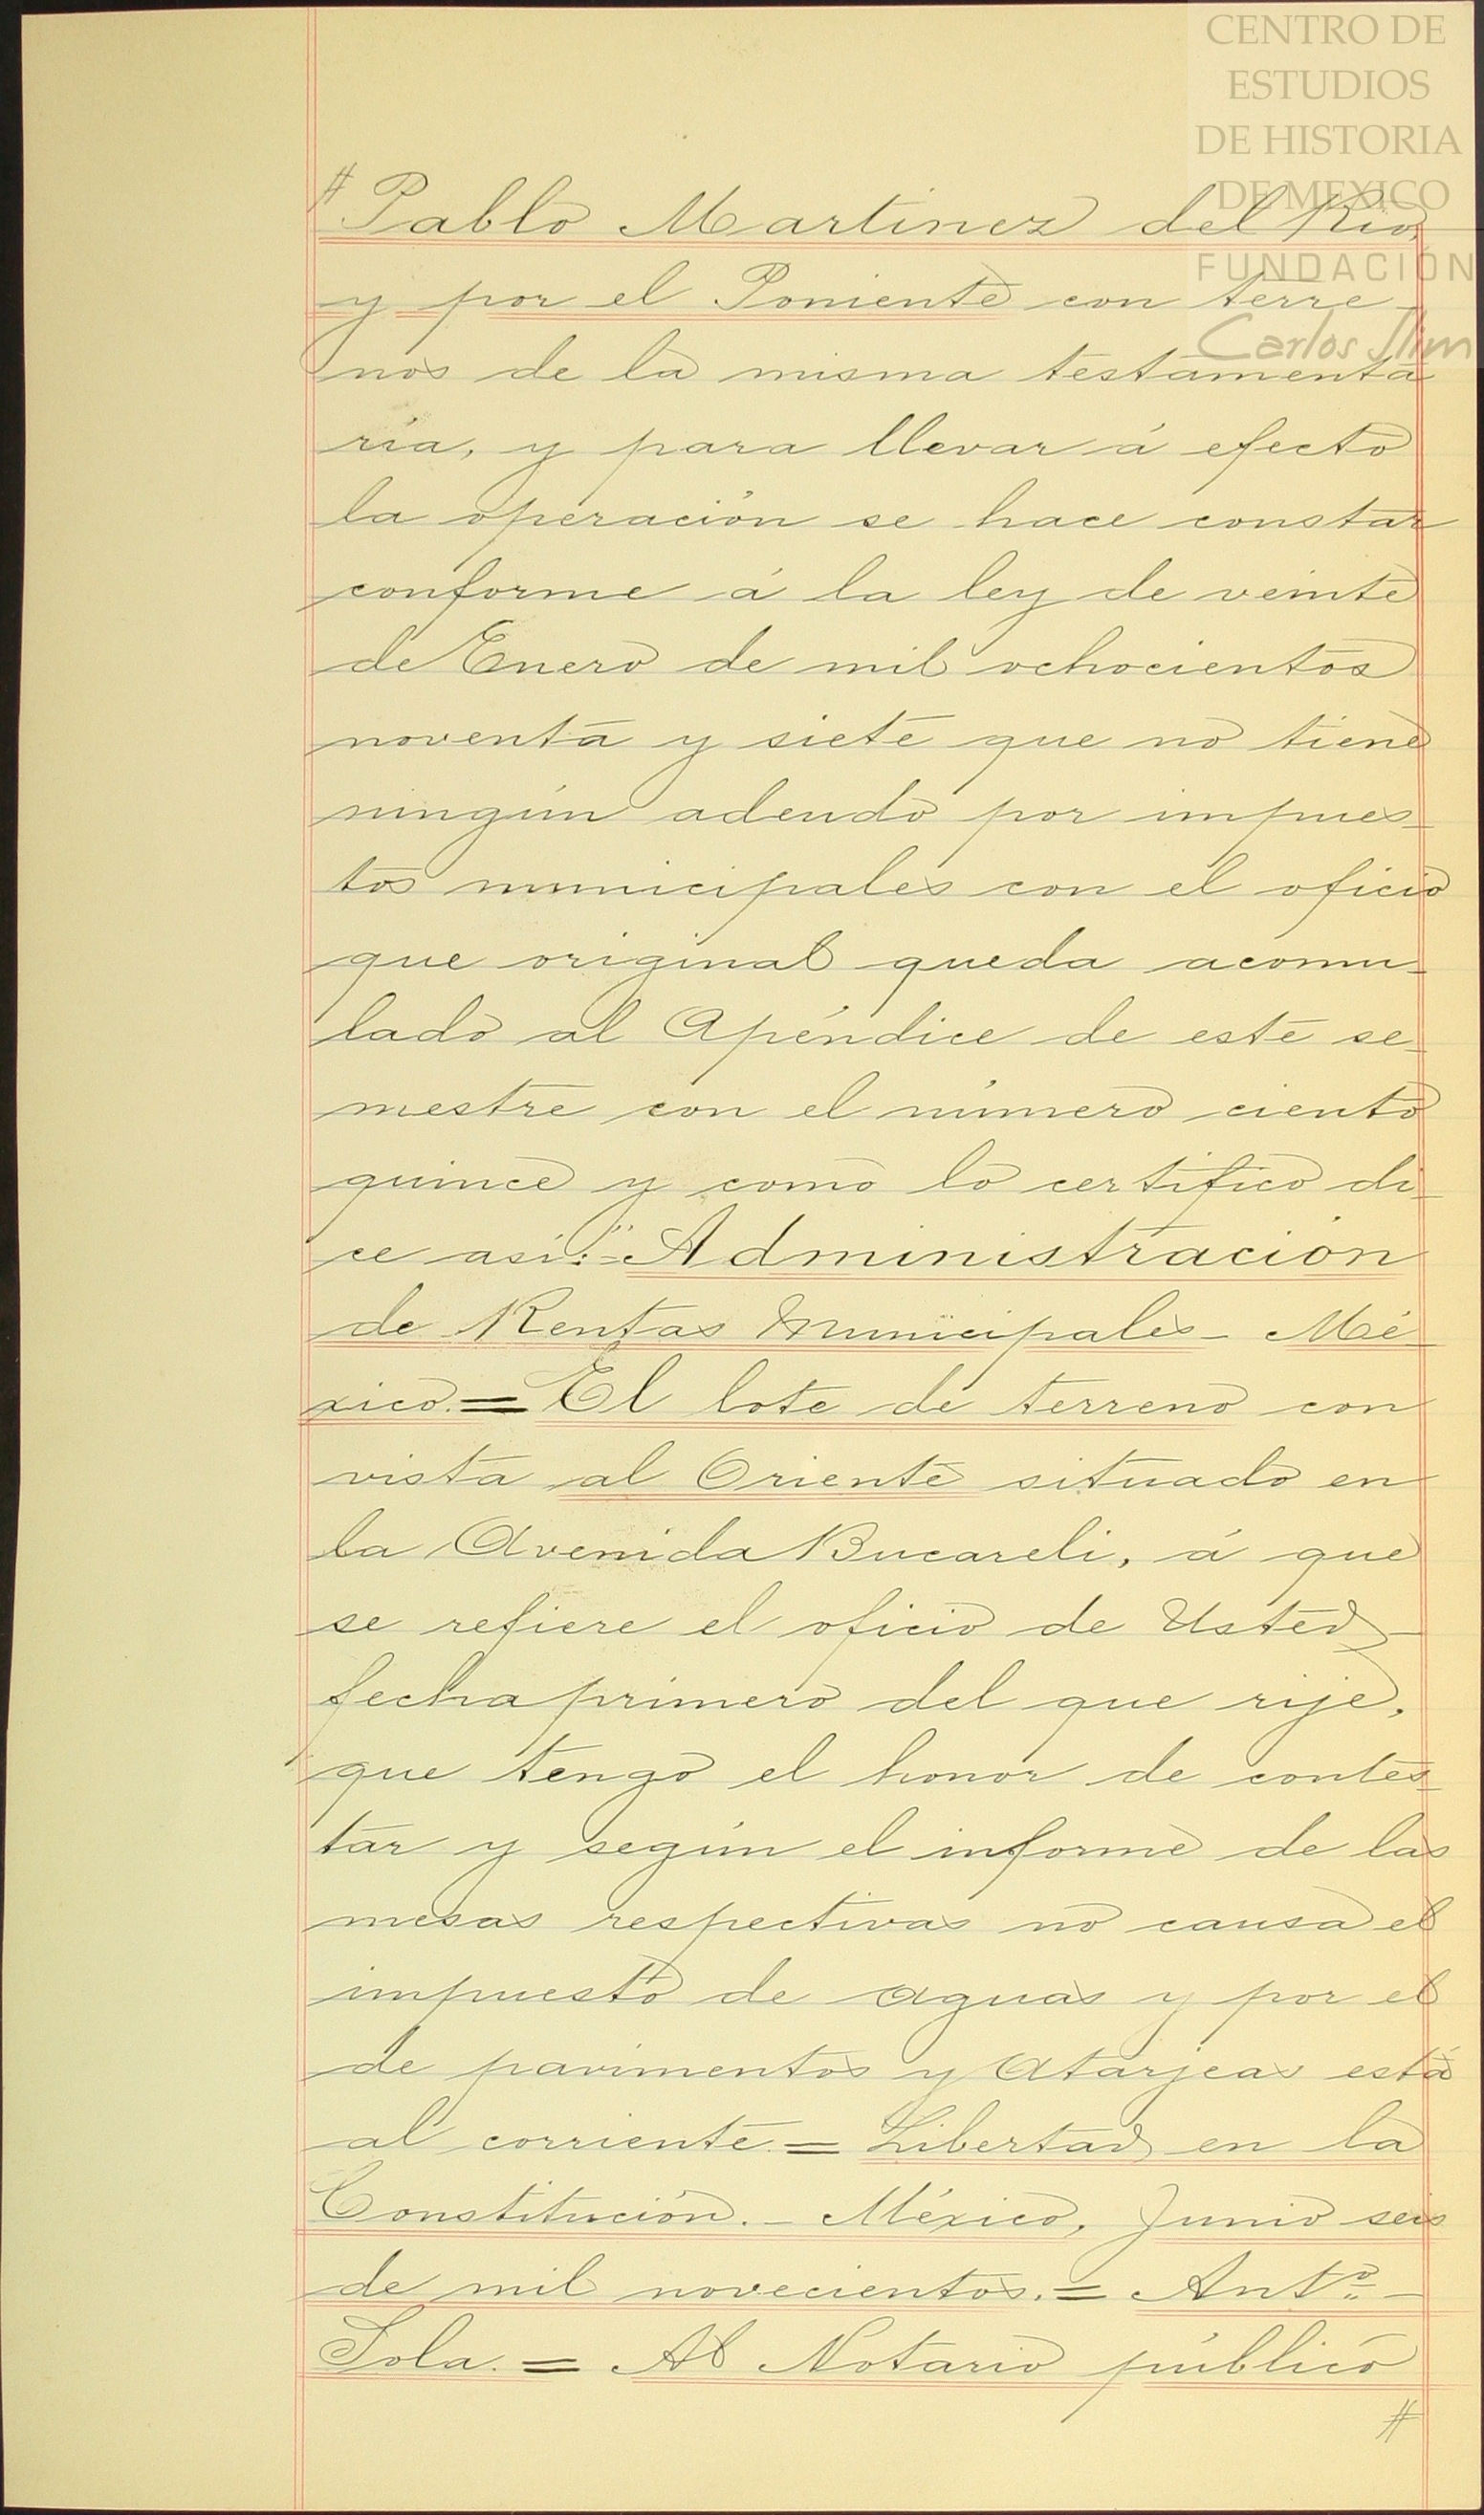 CENTRO DE
ESTUDIOS
DE HISTORIA
DE MEXICO
FUNDACIÓN
Carlos Slim
# Pablo Martinez del Rio,
y por el Poniente con terre-
nos de la misma testamenta
ría, y para llevar á efecto
la operación se hace constar
conforme á la ley de veinte
de Enero de mil ochocientos
noventa y siete que no tiene
ningún adeudo por impues-
tos municipales con el oficio
que original queda acomu-
lado al Apéndice de este se-
mestre con el número ciento
quince y como lo certifico di-
ce así: "= Administración
de Rentas Municipales - Mé-
xico. = El lote de terreno con
vista al Oriente situado en
la Avenida Bucareli, á que
se refiere el oficio de Usted -
fecha primero del que rije,
que tengo el honor de contes-
tar y según el informe de las
mesas respectivas no causa el
impuesto de aguas y por el
de pavimentos y Atarjeas está
al corriente. = Libertad en la
Constitución. - México, Junio seis
de mil novecientos. = Antº -
Sola. = Al Notario público
#